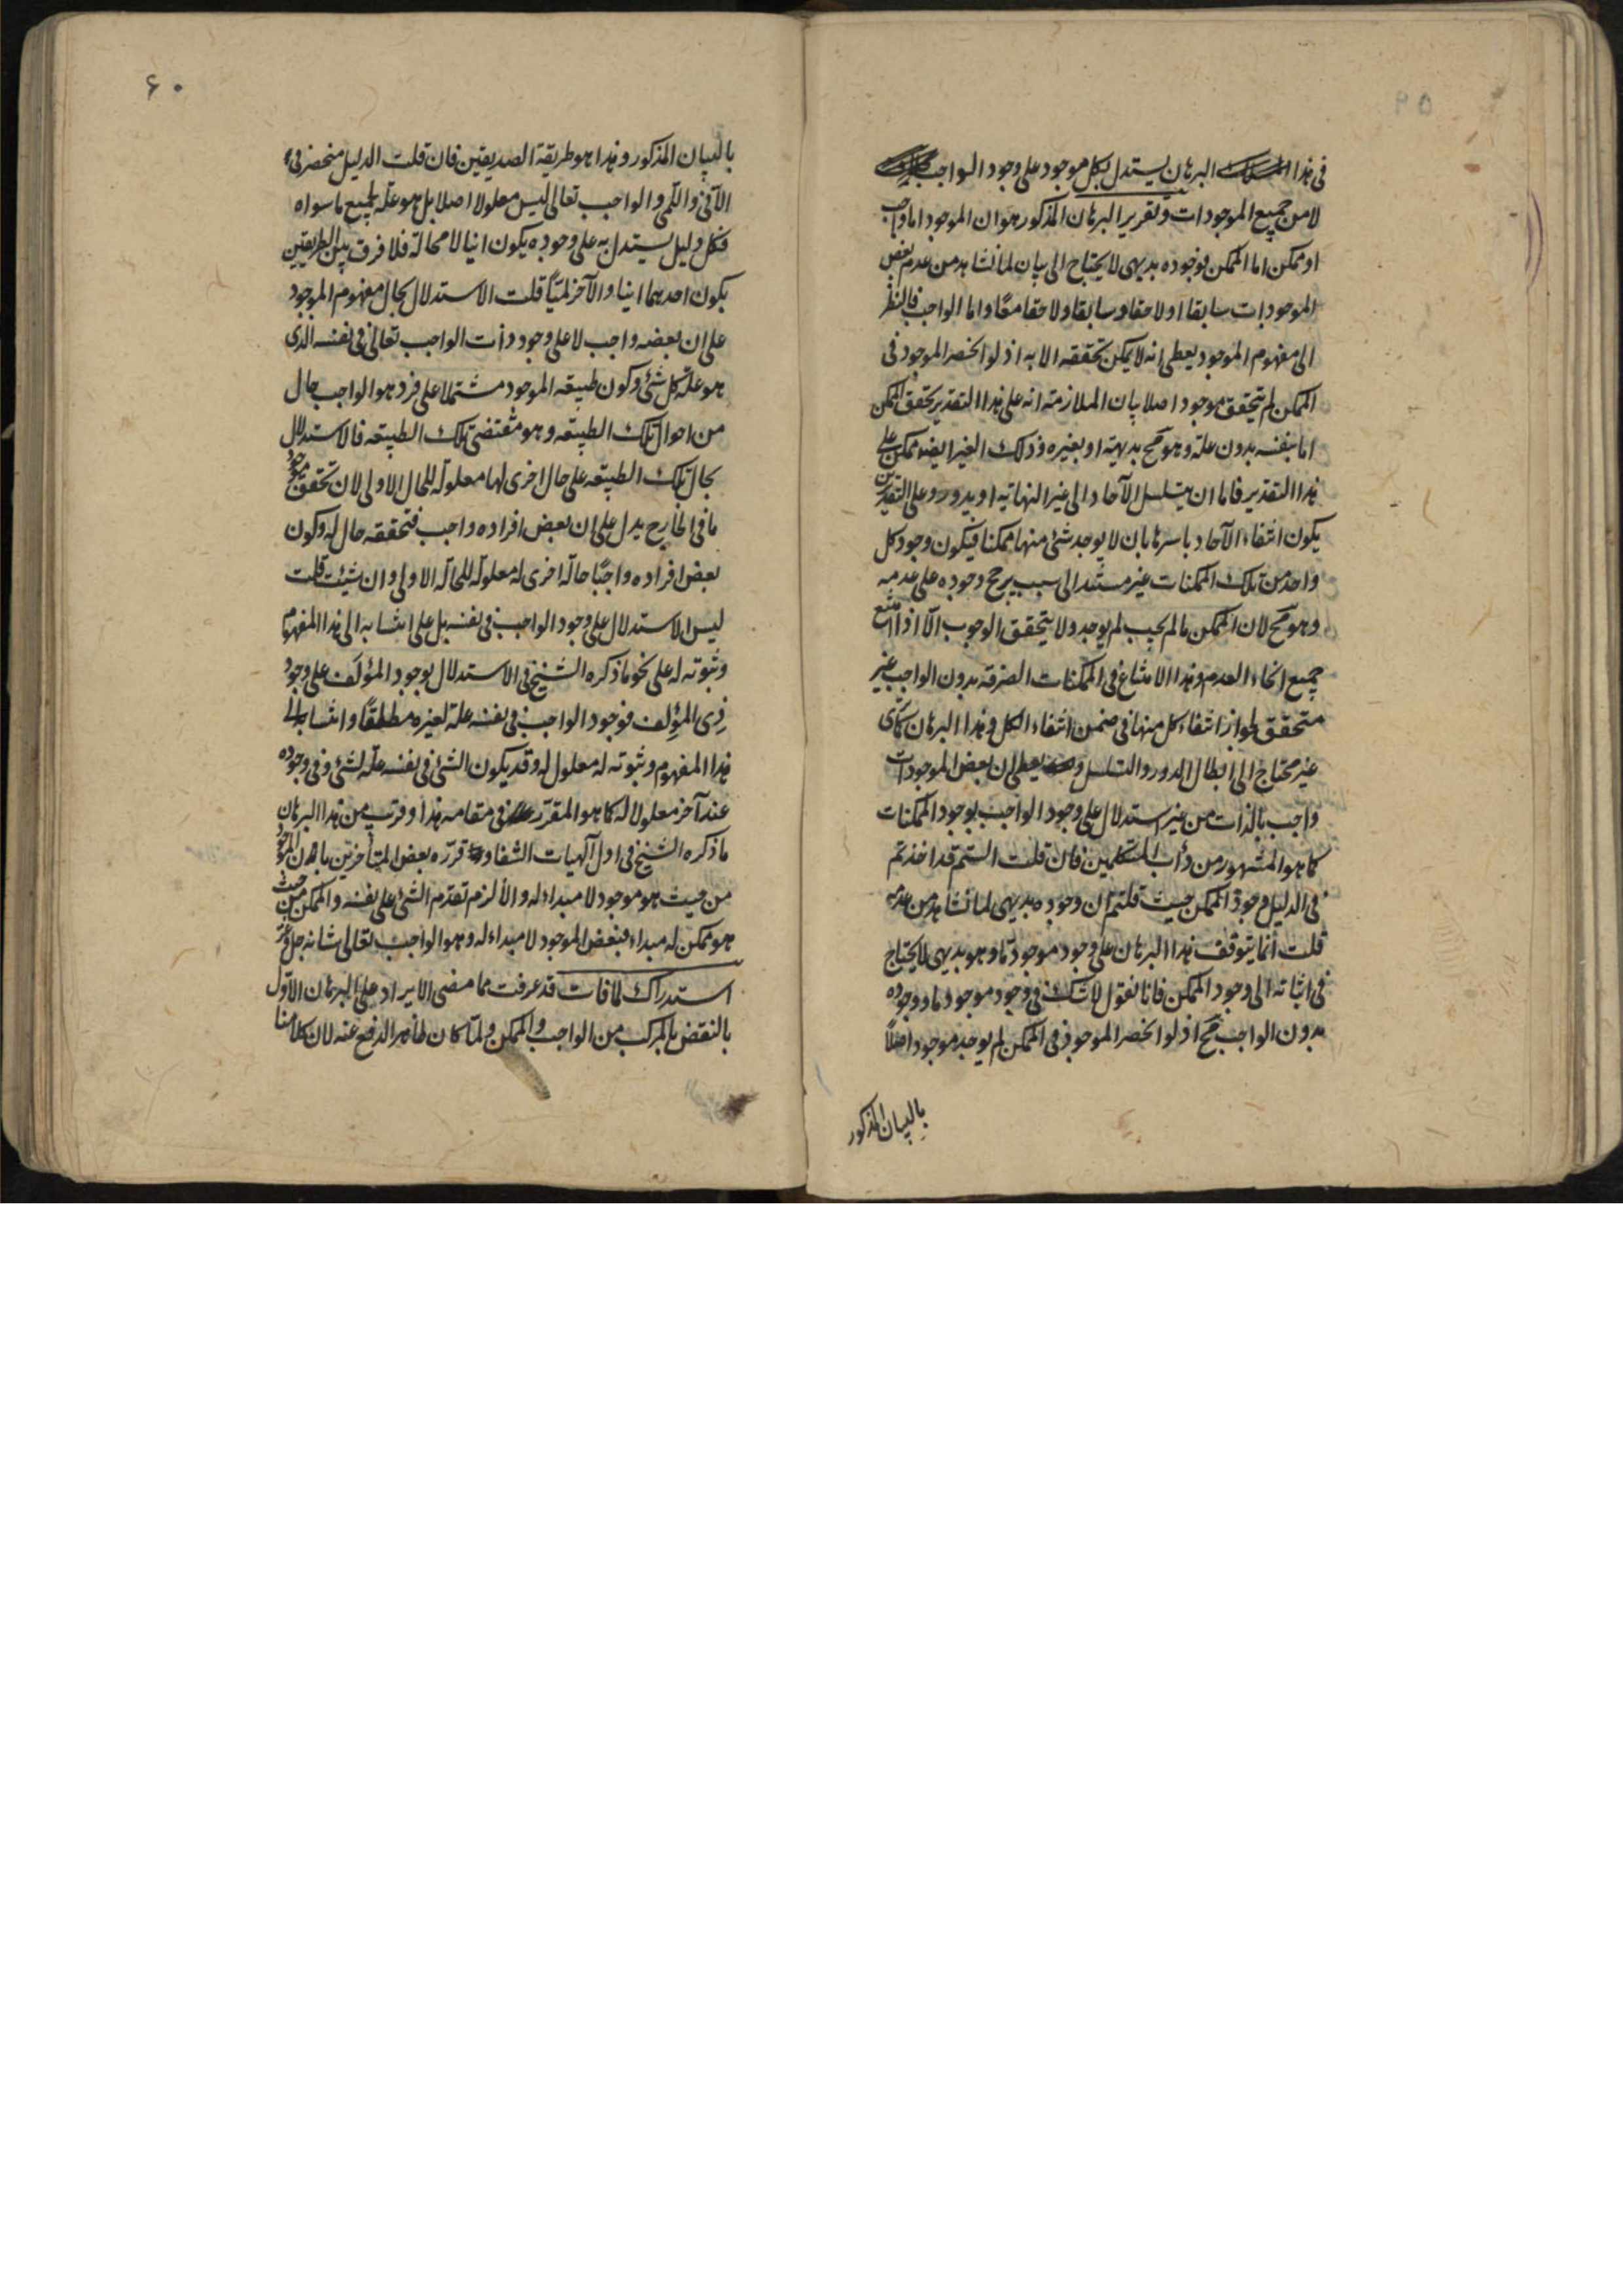 في هذا البرهان يستدل بكل موجود على وجود الواجب
لا من جميع الموجودات وتقرير البرهان المذكور هو ان الموجود اما واجب
او ممكن اما الممكن فوجوده بديهي لا يحتاج الى بيان لما نشاهد من عدم بعض
الموجودات سابقا او لاحقا وسابقا ولاحقا معًا واما الواجب فالنظر
الى مفهوم الموجود يعطى انه لا يمكن تحققه الا به اذ لو انحصر الموجود في
الممكن لم يتحقق موجود اصلا بيان الملازمة انه على هذا التقدير تحقق الممكن
اما بنفسه بدون علة وهو مح بديهة او بغيره وذلك الغير ايضا ممكن على
هذا التقدير فاما ان يتسلسل الآحاد الى غير النهاية او يدور وعلى التقديرين
يكون انتفاء الآحاد باسرها بان لا يوجد شئ منها ممكنا فيكون وجود كل
واحد من تلك الممكنات غير مستند الى سبب يرجح وجوده على عدمه
وهو مح لان الممكن ما لم يجب لم يوجد ولا يتحقق الوجوب الّا اذا امتنع
جميع انحاء العدم وهذا الامتناع في الممكنات الصرفة بدون الواجب غير
متحقق لجواز انتفاء كل منها في ضمن انتفاء الكل وهذا البرهان كما ترى
غير محتاج الى ابطال الدور والتسلسل و يعطى ان بعض الموجودات
واجب بالذات من غير استدلال على وجود الواجب بوجود الممكنات
كما هو المشهور من دأب المتكلمين فان قلت الستم قد اخذتم
في الدليل وجود الممكن حيث قلتم ان وجوده بديهي لما نشاهد من عدمه
قلت انما يتوقف هذا البرهان على وجود موجود مّا وهو بديهي لا يحتاج
في اثباته الى وجود الممكن فانا نقول لا شك في وجود موجود ما ووجوده
بدون الواجب مح اذ لو انحصر الموجود في الممكن لم يوجد موجود اصلاً
بالبيان المذكور
۶۰
بالبيان المذكور وهذا هو طريقة الصديقين فان قلت الدليل منحصر في
الآني واللمي والواجب تعالى ليس معلولا اصلا بل هو علة لجميع ما سواه
فكل دليل يستدل به على وجوده يكون انيا لا محالة فلا فرق بين الطريقين
يكون احدهما انيا والآخر لميًا قلت الاستدلال بحال مفهوم الموجود
على ان بعضه واجب لا على وجود ذات الواجب تعالى في نفسه الذي
هو علة كل شئ وكون طبيعة الموجود مشتملا على فرد هو الواجب حال
من احوال تلك الطبيعة وهو مقتضى تلك الطبيعة فالاستدلال
بحال تلك الطبيعة على حال اخرى لها معلولة للحال الاولى لان تحقق موجود
ما في الخارج يدل على ان بعض افراده واجب فتحققه حال له وكون
بعض افراده واجبًا حالة اخرى له معلولة للحالة الاولى وان شئت قلت
ليس الاستدلال على وجود الواجب في نفسه بل على انتسابه الى هذا المفهوم
وثبوته له على نحو ما ذكره الشيخ في الاستدلال بوجود المؤلَف على وجود
ذي المؤلِف فوجود الواجب في نفسه علة لغيره مطلقًا وانتسابه الى
هذا المفهوم وثبوته له معلول له وقد يكون الشئ في نفسه علة لشئ وفي وجوده
عند آخر معلولا له كما هو المقرر في مقامه هذا وقريب من هذا البرهان
ما ذكره الشيخ في اول آلهيات الشفا و قرره بعض المتأخرين بان الموجود
من حيث هو موجود لا مبداء له والا لزم تقدم الشئ على نفسه والممكن من حيث
هو ممكن له مبداء فبعض الموجود لا مبداء له وهو الواجب تعالى شانه جل وعز
استدراك لما فات قد عرفت مما مضى الايراد على البرهان الاول
بالنقض بالمركب من الواجب والممكن ولمّا كان ظاهر الدفع عنه لان كلامنا